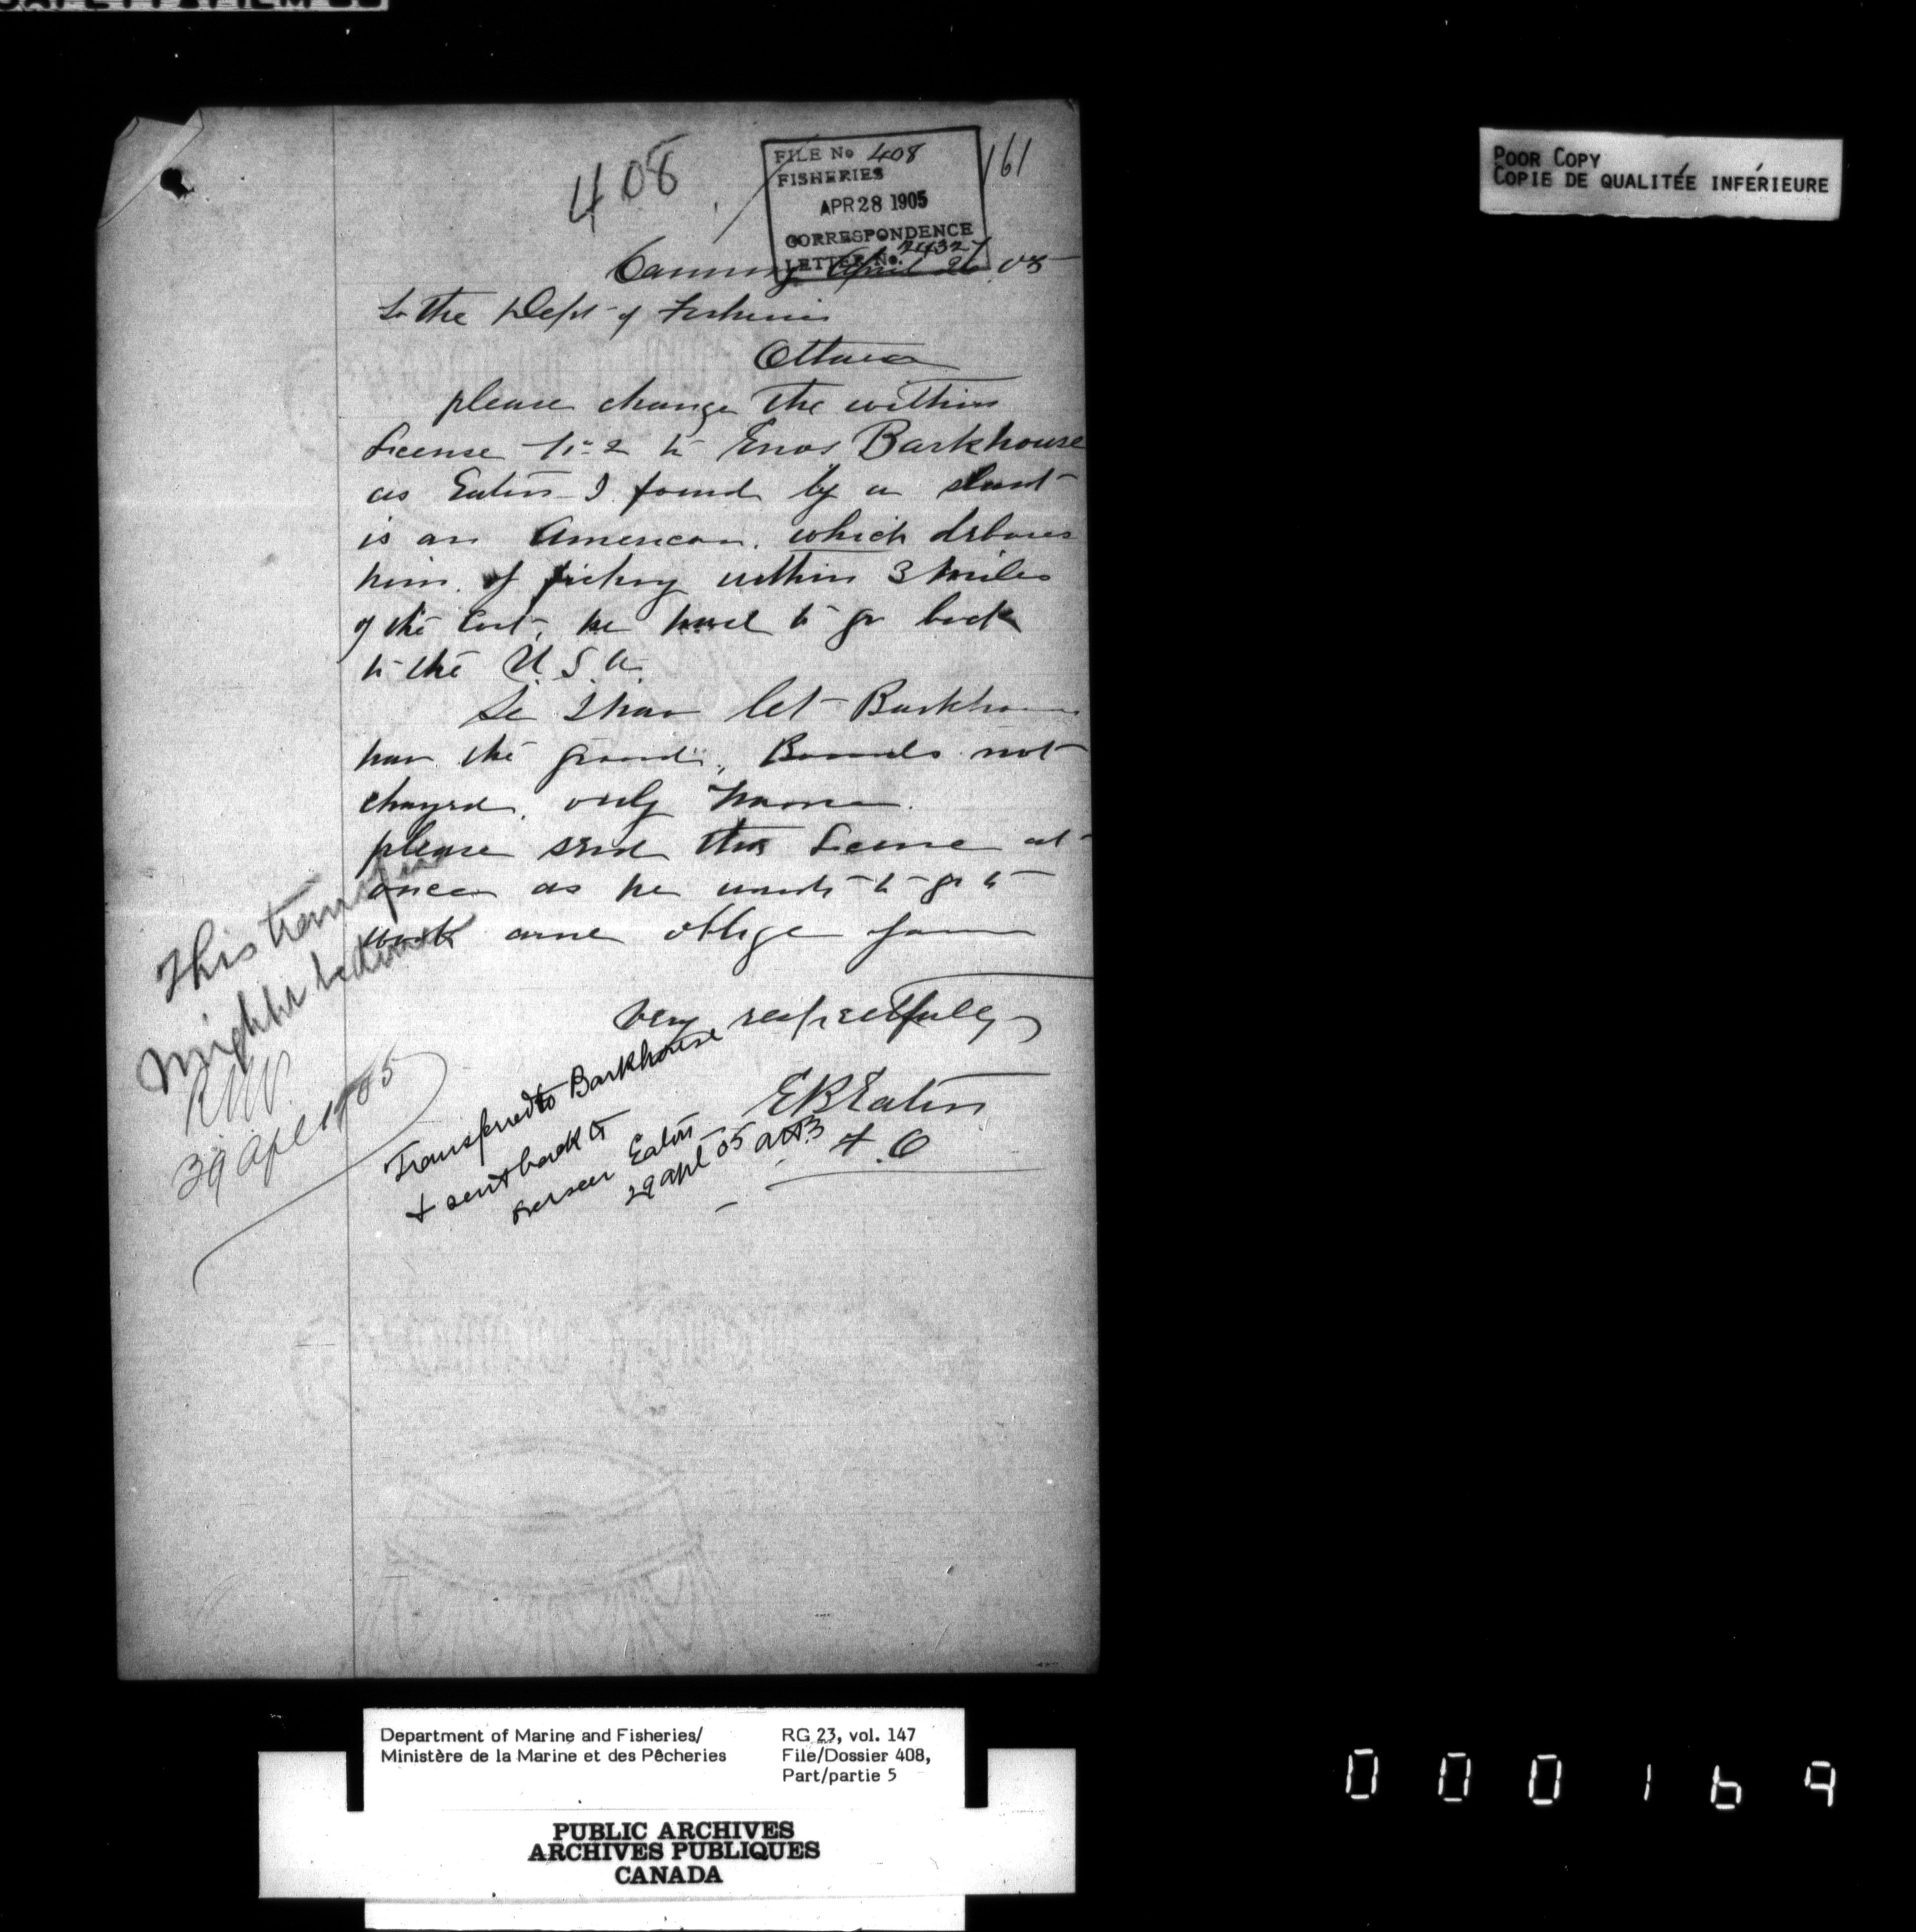 408
161
FILE No 408
FISHERIES
APR 28 1905
CORRESPONDENCE
LETTER No. 24327
Canning April 26 05
To the Dept of Fisheries
Ottawa
please change the within
License No 2 to Enos Barkhouse
as Eaton I found by a
is an American. which debares
him of fishing within 3 miles
of the Cost, he had to go back
to the U.S.A.
So I hav let Barkhouse
hav the ground, Bounds not
changed, only name.
please send this License at
once as he wants to go to
work and oblige yours
very respectfully
E B Eaton
F.O
This transfer
might be done
29 apl 1905
Transferred to Barkhouse
& sent back to
overseer Eaton
29 apl 05
POOR COPY
COPIE DE QUALITÉE INFÉRIEURE
Department of Marine and Fisheries/
Ministère de la Marine et des Pêcheries
RG 23, vol. 147
File/Dossier 408,
Part/partie 5
PUBLIC ARCHIVES
ARCHIVES PUBLIQUES
CANADA
000169